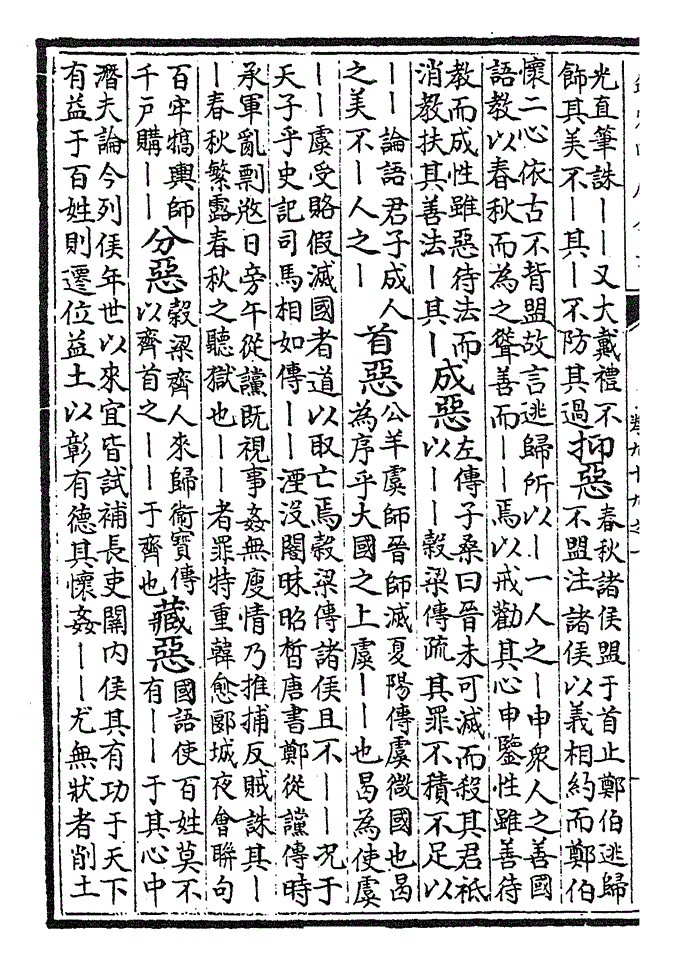 光直筆誅——又大戴禮不
飾其美不—其—不防其過
抑惡
春秋諸侯盟于首止鄭伯逃歸
不盟注諸侯以義相約而鄭伯
懷二心依古不背盟故言逃歸所以—一人之—申衆人之善國
語教以春秋而為之聳善而——焉以戒勸其心申鑒性雖善待
教而成性雖惡待法而
消教扶其善法—其—
成惡
左傳子桑曰晉未可滅而殺其君祇
以——穀梁傳疏其罪不積不足以
——論語君子成人
之美不—人之—
首惡
公羊虞師晉師滅夏陽傳虞微國也曷
為序乎大國之上虞——也曷為使虞
——虞受賂假滅國者道以取亡焉穀梁傳諸侯且不——况于
天子乎史記司馬相如傳——湮沒闇昧昭晳唐書鄭從讜傳時
承軍亂剽日旁午從讜既視事姦無廋情乃推捕反賊誅其—
—春秋繁露春秋之聽獄也——者罪特重韓愈郾城夜會聯句
百牢犒輿師
千戸購——
分惡
穀梁齊人來歸衛寶傳
以齊首之——于齊也
藏惡
國語使百姓莫不
有——于其心中
潛夫論今列侯年世以來宜皆試補長吏關内侯其有功于天下
有益于百姓則遷位益土以彰有德其懷姦——尤無狀者削土